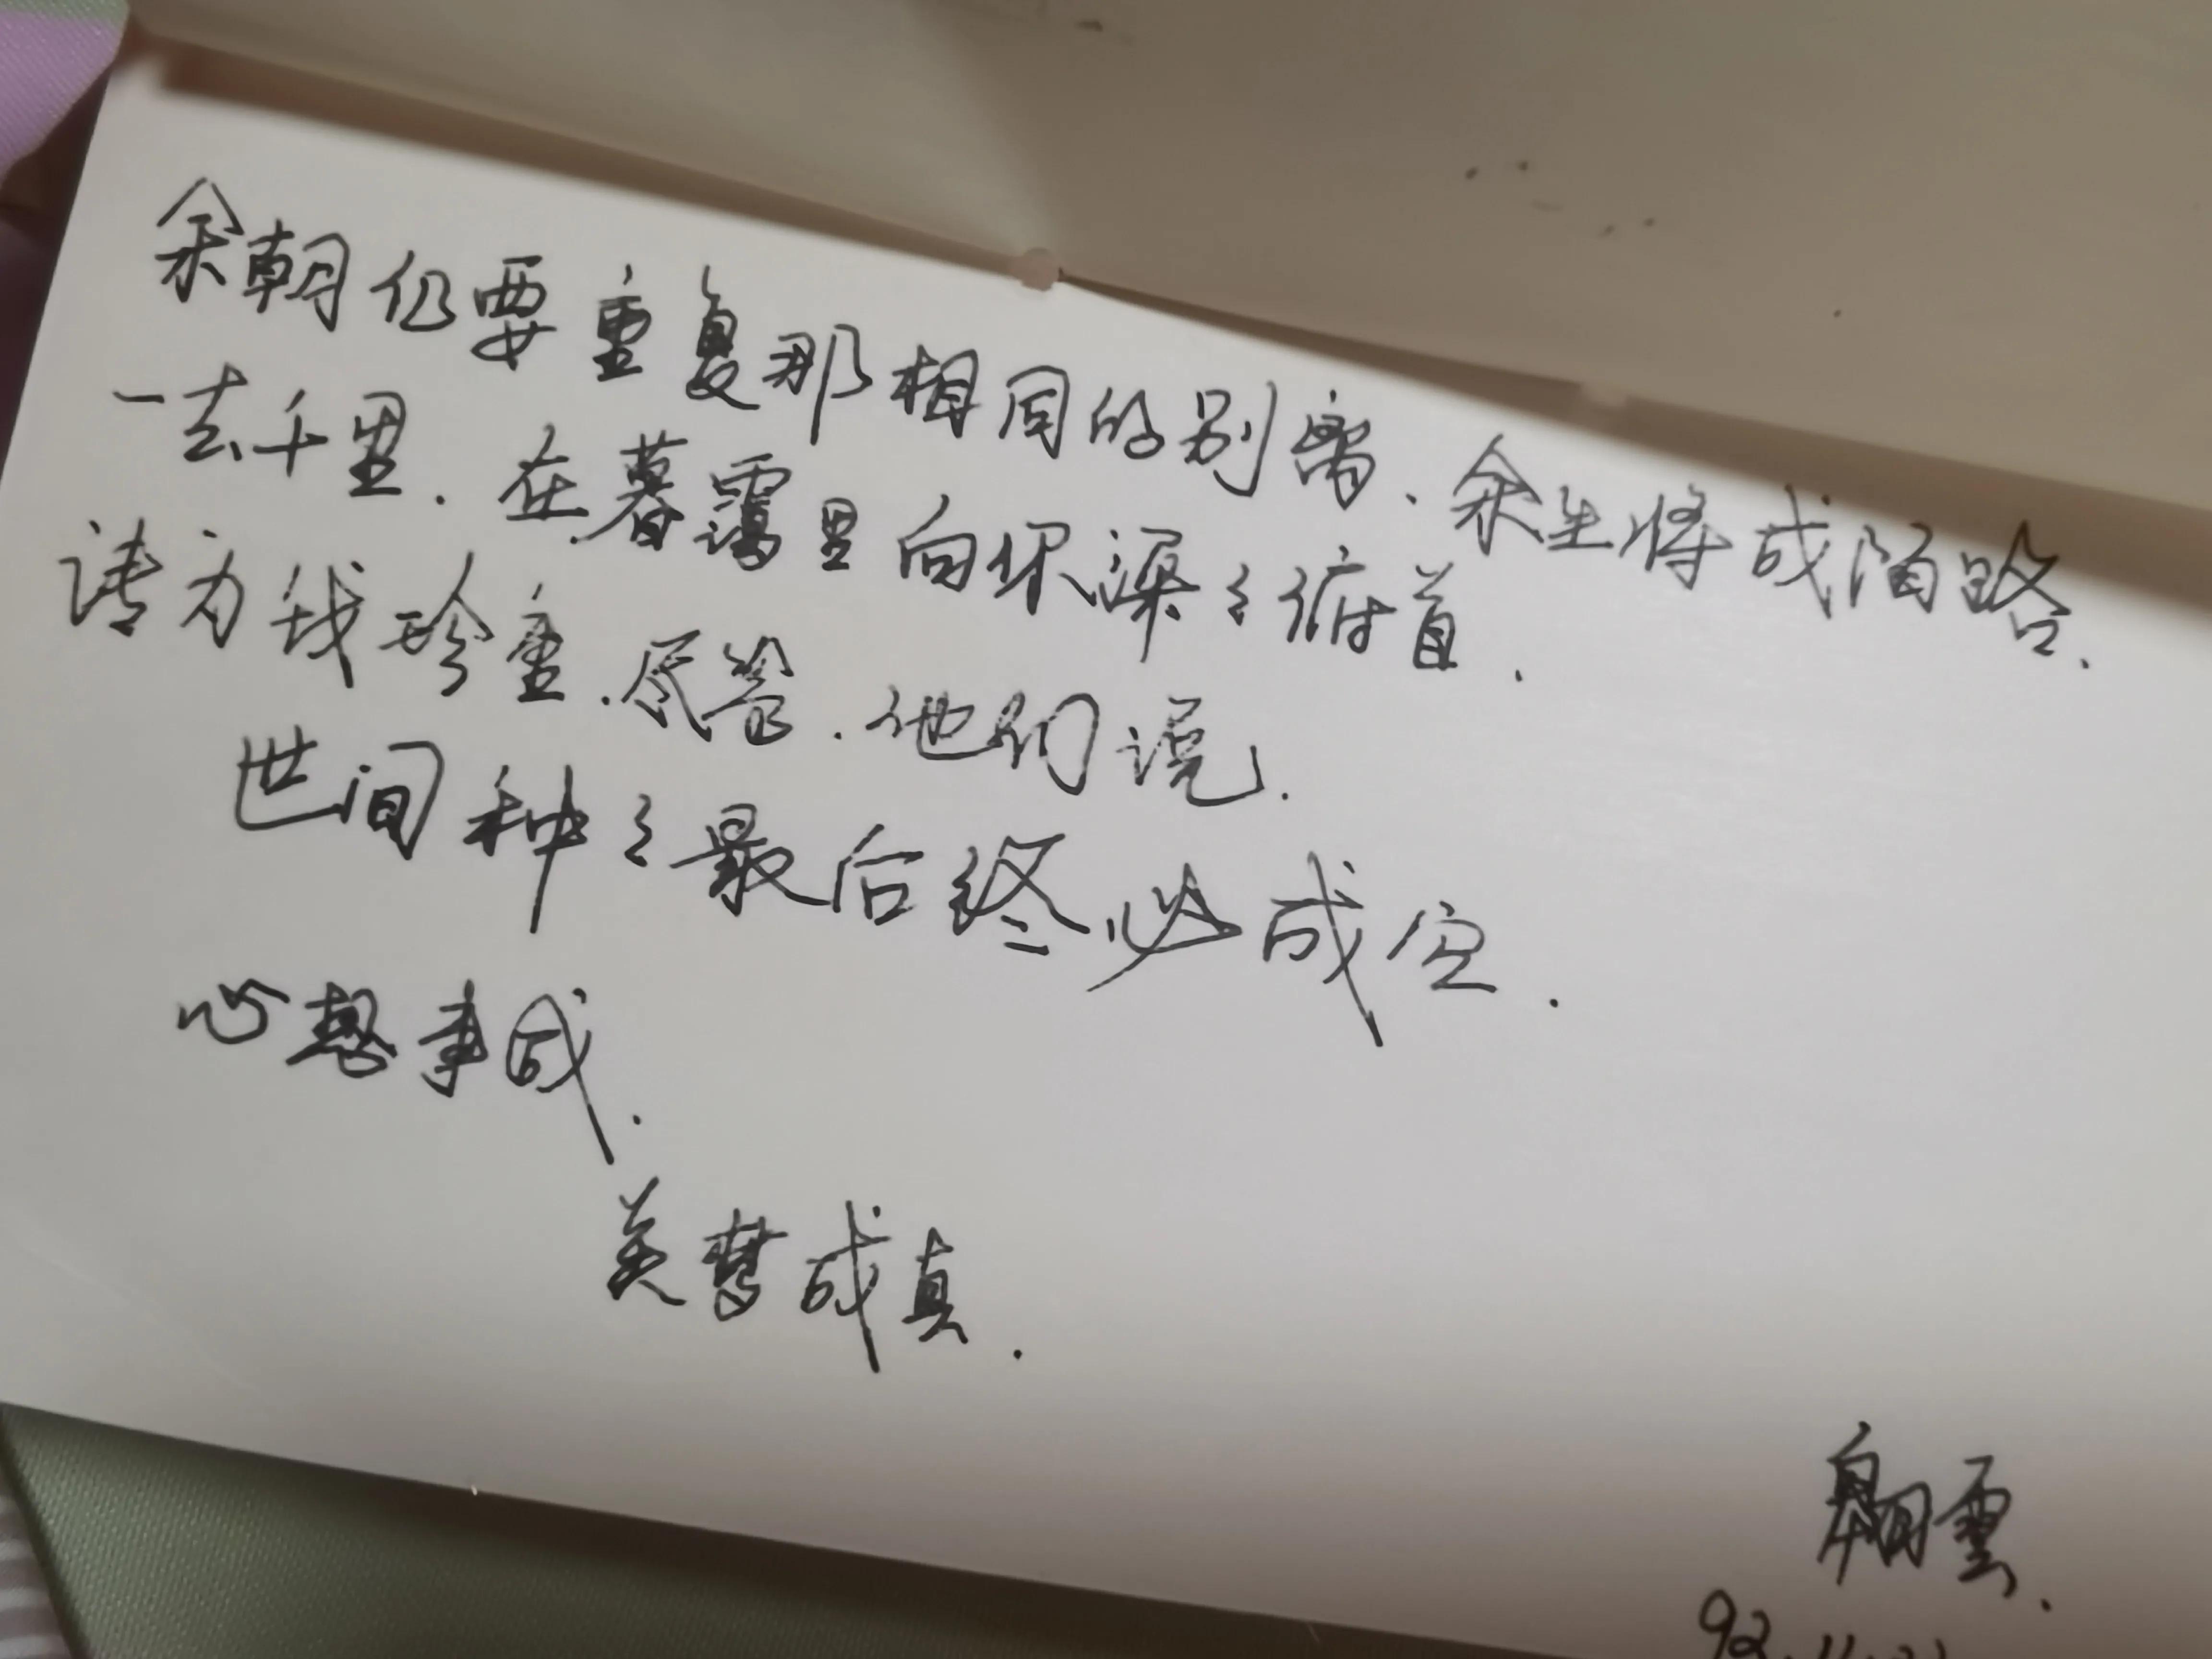 余朝仍要重复那相同的别离.余生将成陌路.
一去千里.在暮霭里向你深々俯首.
请为我珍重.尽管.他们说.
世间种々最后终必成空.
心想事成.
美梦成真.
翱雲.
92.11.